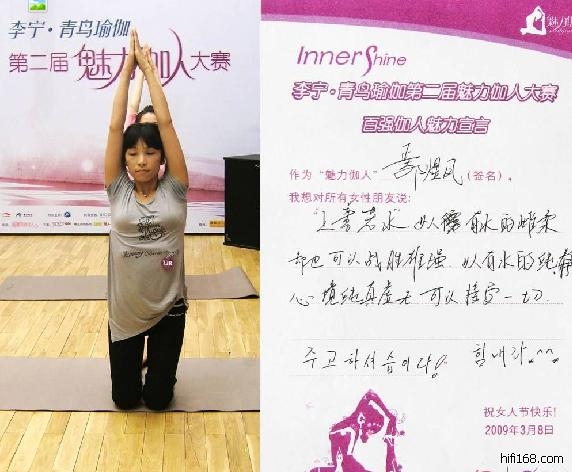 李宁·青鸟瑜伽
第二届 魅力伽人大赛
UR
InnerShine
李宁·青鸟瑜伽第二届魅力伽人大赛
百强伽人魅力宣言
作为“魅力伽人” 煜凤 (签名),
我想对所有女性朋友说:
“上善若水 女人 有水的雌柔
却也可以战胜雄强 女人有水的纯静
心境纯真虚无 可以接受一切.
주고 하셔습이다! 힘내라.^^
祝女人节快乐!
2009年3月8日
hifi168.com